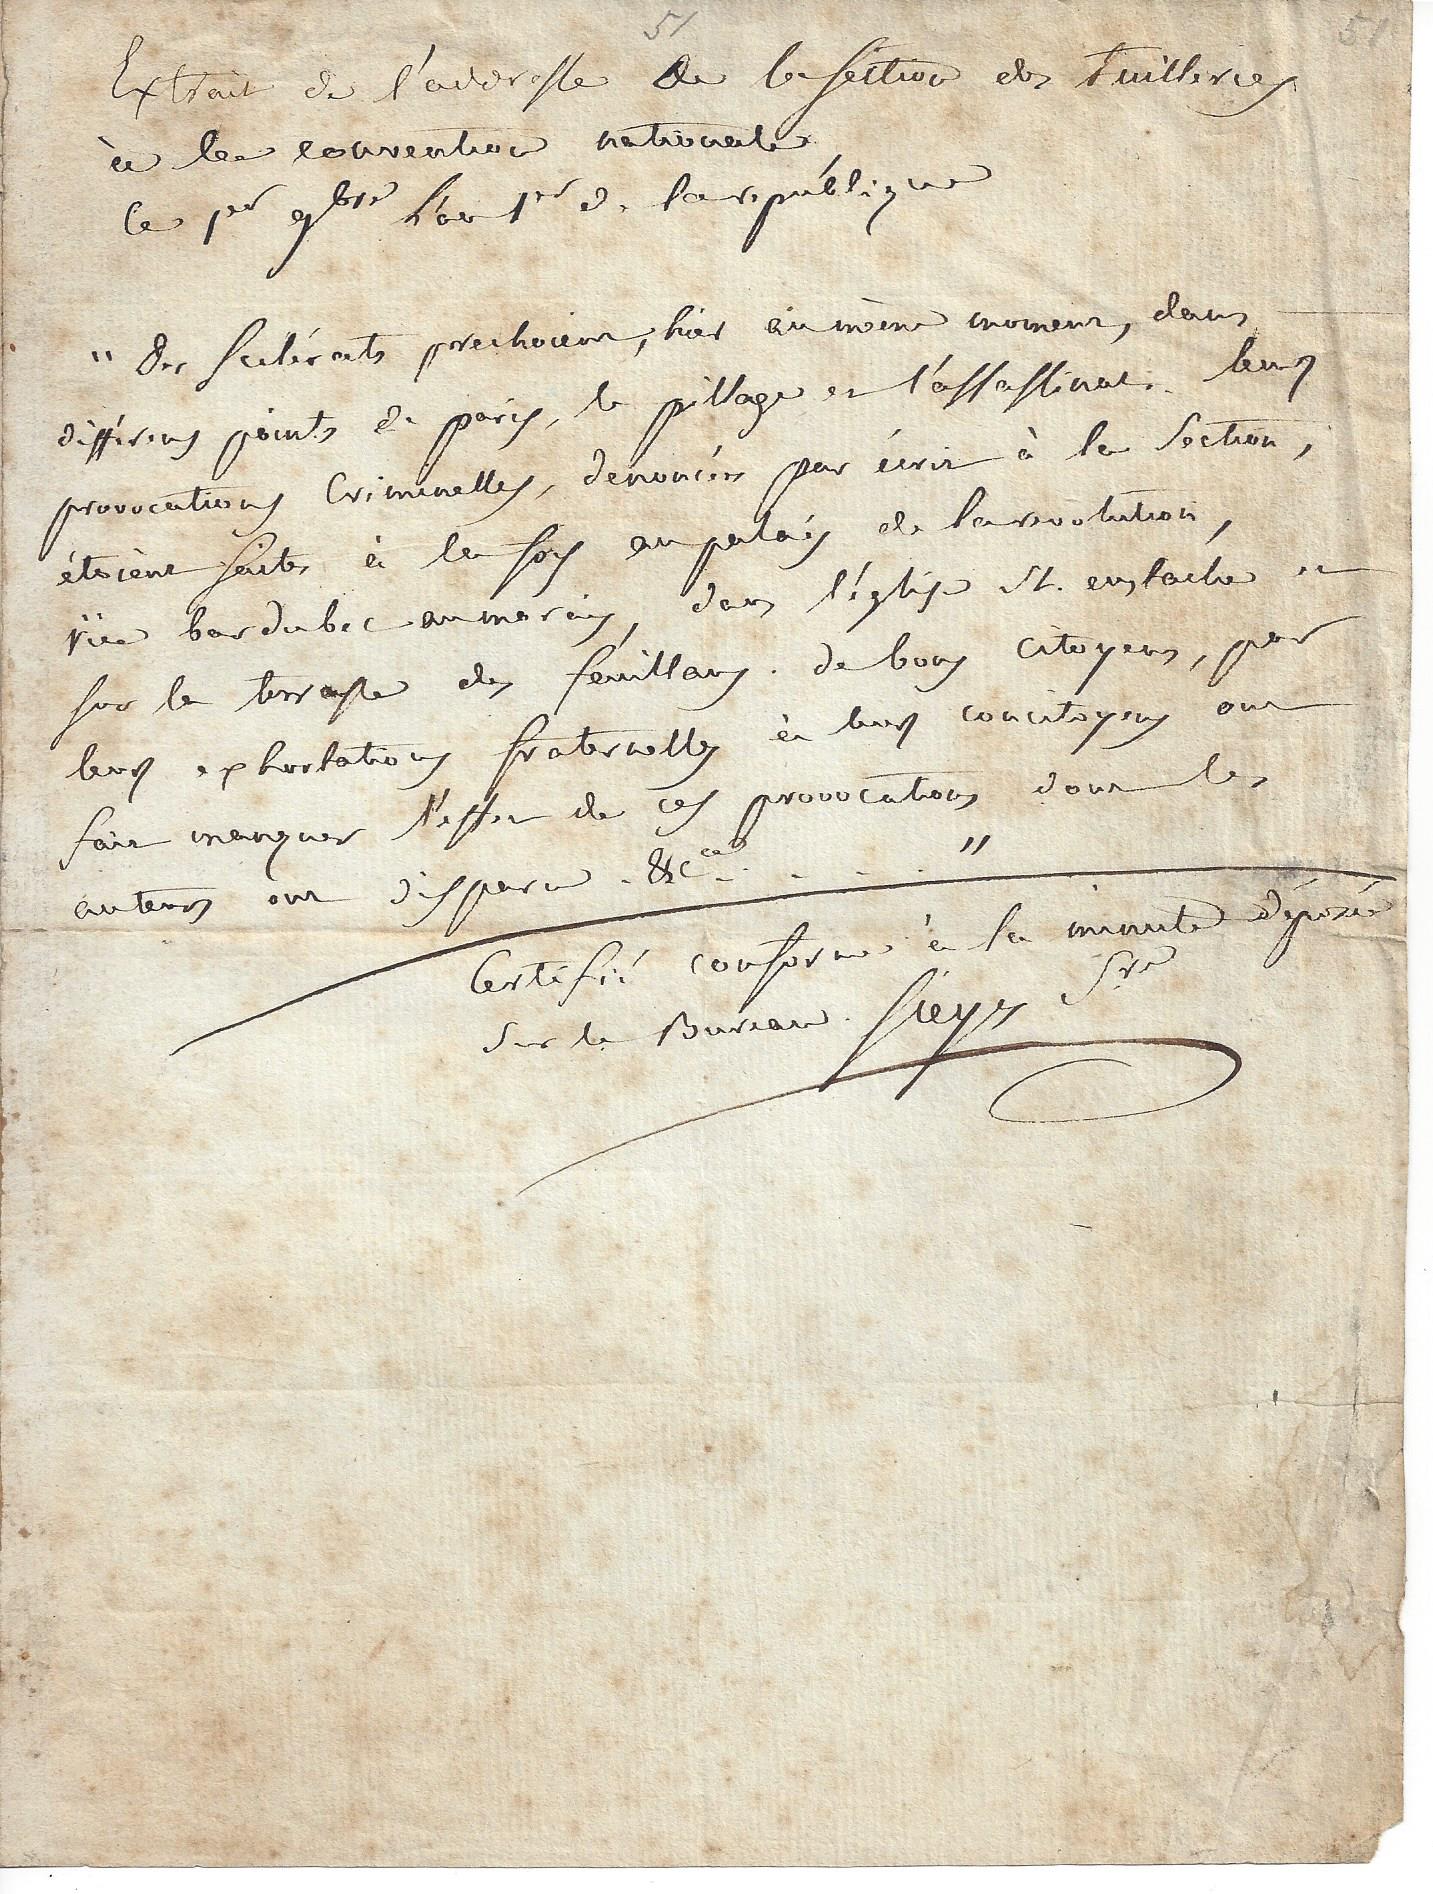 51 51
Extrait de l'addresse de la section des Tuilleries
à la convention nationale
le 1er 9bre l'an 1er de la république
" des scélérats prechoient, hier au même moment, dans
différens points de paris, le pillage et l'assassinat. leurs
provocations Criminelles, denoncées par écrit à la Section,
étoient faites à la fois au palais de la revolution,
rüe bardubec au marais, dans l'église St. eustache et
sur la terrasse des feuillans. de bons citoyens, par
leurs exhortations fraternelles à leurs concitoyens ont
fait manquer l'effet de ces provocations dont les
auteurs ont disparu. &ca . . . . . "
Certifié conforme à la minute déposée
Sur le Bureau. Sieyes Sre